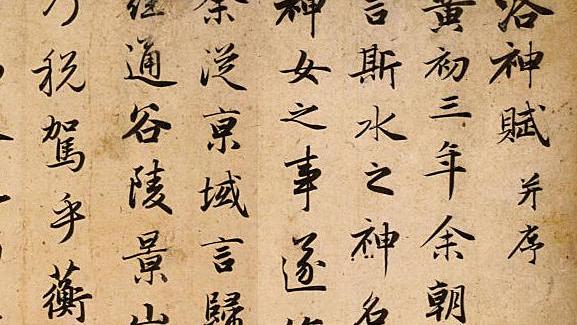 洛神賦并序
黃初三年余朝
言斯水之神名
神女之事遂作
余從京域言歸
經通谷陵景山
乃税駕乎蘅